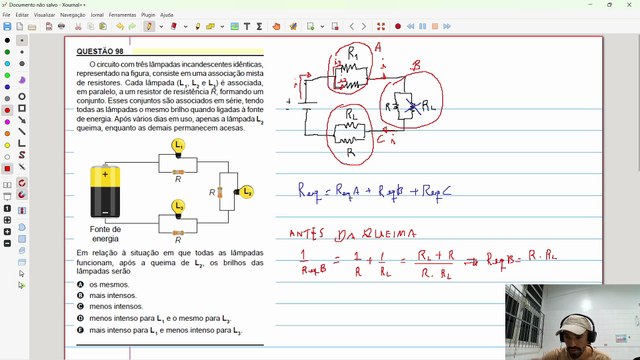 Documento não salvo - Xournal++
Arquivo Editar Visualizar Navegação Jornal Ferramentas Plugin Ajuda
QUESTÃO 98
O circuito com três lâmpadas incandescentes idênticas,
representado na figura, consiste em uma associação mista
de resistores. Cada lâmpada (L₁, L₂ e L₃) é associada,
em paralelo, a um resistor de resistência R, formando um
conjunto. Esses conjuntos são associados em série, tendo
todas as lâmpadas o mesmo brilho quando ligadas à fonte
de energia. Após vários dias em uso, apenas a lâmpada L₂
queima, enquanto as demais permanecem acesas.
L₁
R
R
L₂
L₃
R
Fonte de
energia
Em relação à situação em que todas as lâmpadas
funcionam, após a queima de L₂, os brilhos das
lâmpadas serão
A os mesmos.
B mais intensos.
C menos intensos.
D menos intenso para L₁ e o mesmo para L₃.
E mais intenso para L₁ e menos intenso para L₃.
A
R₁
i
B
R
RL
RL
R
C
i
Req = ReqA + ReqB + ReqC
ANTES DA QUEIMA
1/ReqB = 1/R + 1/RL = RL + R/R. RL ⇒ ReqB = R. RL